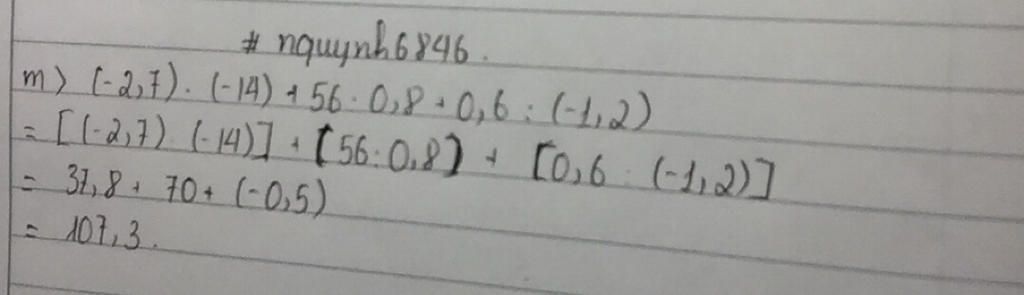 # nquynh6846.
m) (-2,7). (-14) + 56 : 0,8 + 0,6 : (-1,2)
= [(-2,7). (-14)] + [56 : 0,8] + [0,6 : (-1,2)]
= 37,8 + 70 + (-0,5)
= 107,3.